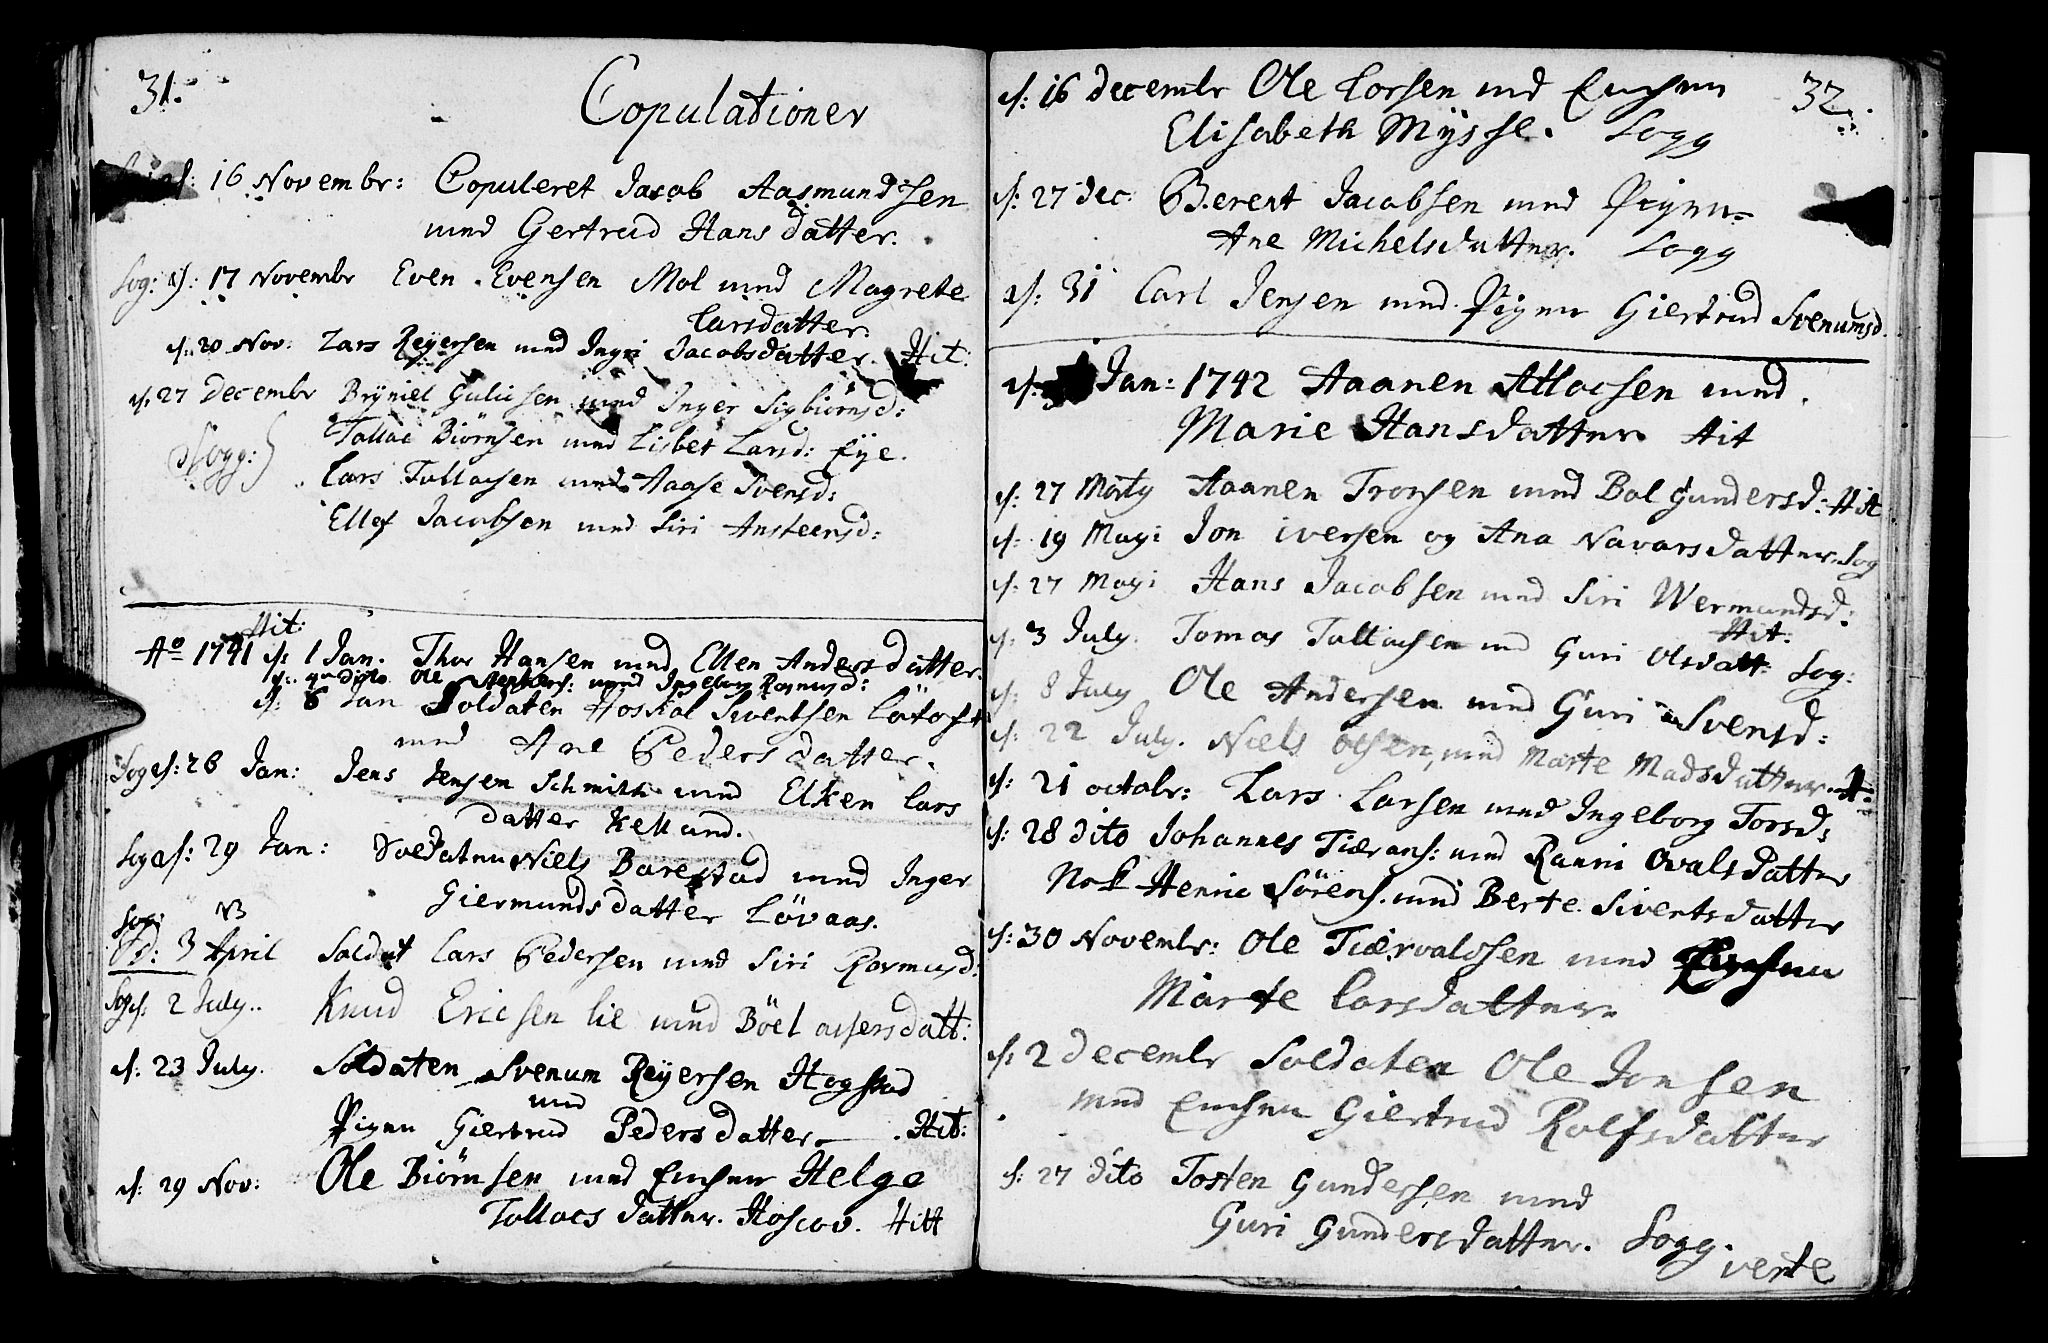 31.
Copulationer
d: 16 Novembr: Copuleret Jacob Aasmundsen
med Gertrud Hans datter.
Sog: d: 17 Novembr Even Evensen Mol med Magrete
Larsdatter.
d: 20 Nov: Lars Reyersen med Ingri Jacobsdatter. Hit:
d: 27 Decembr Bryniel Guliesen med Inger Sigbiörnsd:
Tollac Biörnsen med Lisbet Larsd: Eye.
Sogg:
Lars Tollacsen med Aaase Svensd:
Ellef Jacobsen med Siri Ansteensd:
Hit:
Ao 1741 d: 1 Jan. Thor Hansen med Ellen Andersdatter.
dito Ole med Ingeborg Rasmusd:
d: 6 Jan Soldaten Hoskol Sivertsen
med Ane Pedersdatter.
Sog d: 26 Jan: Jens Jensen Schmith med Elken Lars
datter Kelland.
Sog d: 29 Jan: Soldaten Niels Barestad med Inger
Giermundsdatter Lövaas.
Sog:
d: 3 April Soldat Lars Pedersen med Siri Rasmusd:
Sog d: 2 July.. Knud Ericsen Lie med Böel assersdatt:
d: 23 July. Soldaten Svenum Reyersen Hogstad
med
Pigen Giertrud Pedersdatter. Hit:
d: 29 Nov: Ole Biörnsen med Enchen Helge
Tollacs datter. Hoscov. Hitt
32
d: 16 decembr Ole Larsen med Enchen
Elisabeth Mysse. Sogg
d: 27 dec: Berent Jacobsen med Pigen
Ane Michelsdatter. Sogg
d: 31 Carl Jensen med Pigen Giertrud Svenumsd.
d: Jan: 1742 Aaanen Atlacsen med
Marie Hansdatter Hit
d: 27 Marty Aaanen Tronsen med Bol Gundersd: Hit
d: 19 Mayi Jon iversen og Ana Navarsdatter. Sog
d: 27 Mayi Hans Jacobsen med Siri Wermundsd:
Hit:
d: 3 July. Tomas Tollacsen med Guri Olsdatt: Sog:
d: 8 July Ole Andersen med Guri Svensd:
d: 22 July. Niels Olsen, med Marte Madsdatter. H:
d: 21 octobr: Lars Larsen med Ingeborg Torsd:
d: 28 dito Johannes Tiærans: med Ranni Ovalsdatter
Nok Henric Sörens. med Berte Sivertsdatter
d: 30 Novembr: Ole Tiærvaldsen med
Marte Larsdatter.
d: 2 decembr Soldaten Ole Jonsen
med Enchen Giertrud Rolfsdatter
d: 27 dito Tosten Gundersen med
Guri Gundersdatter. Sogg.
verte